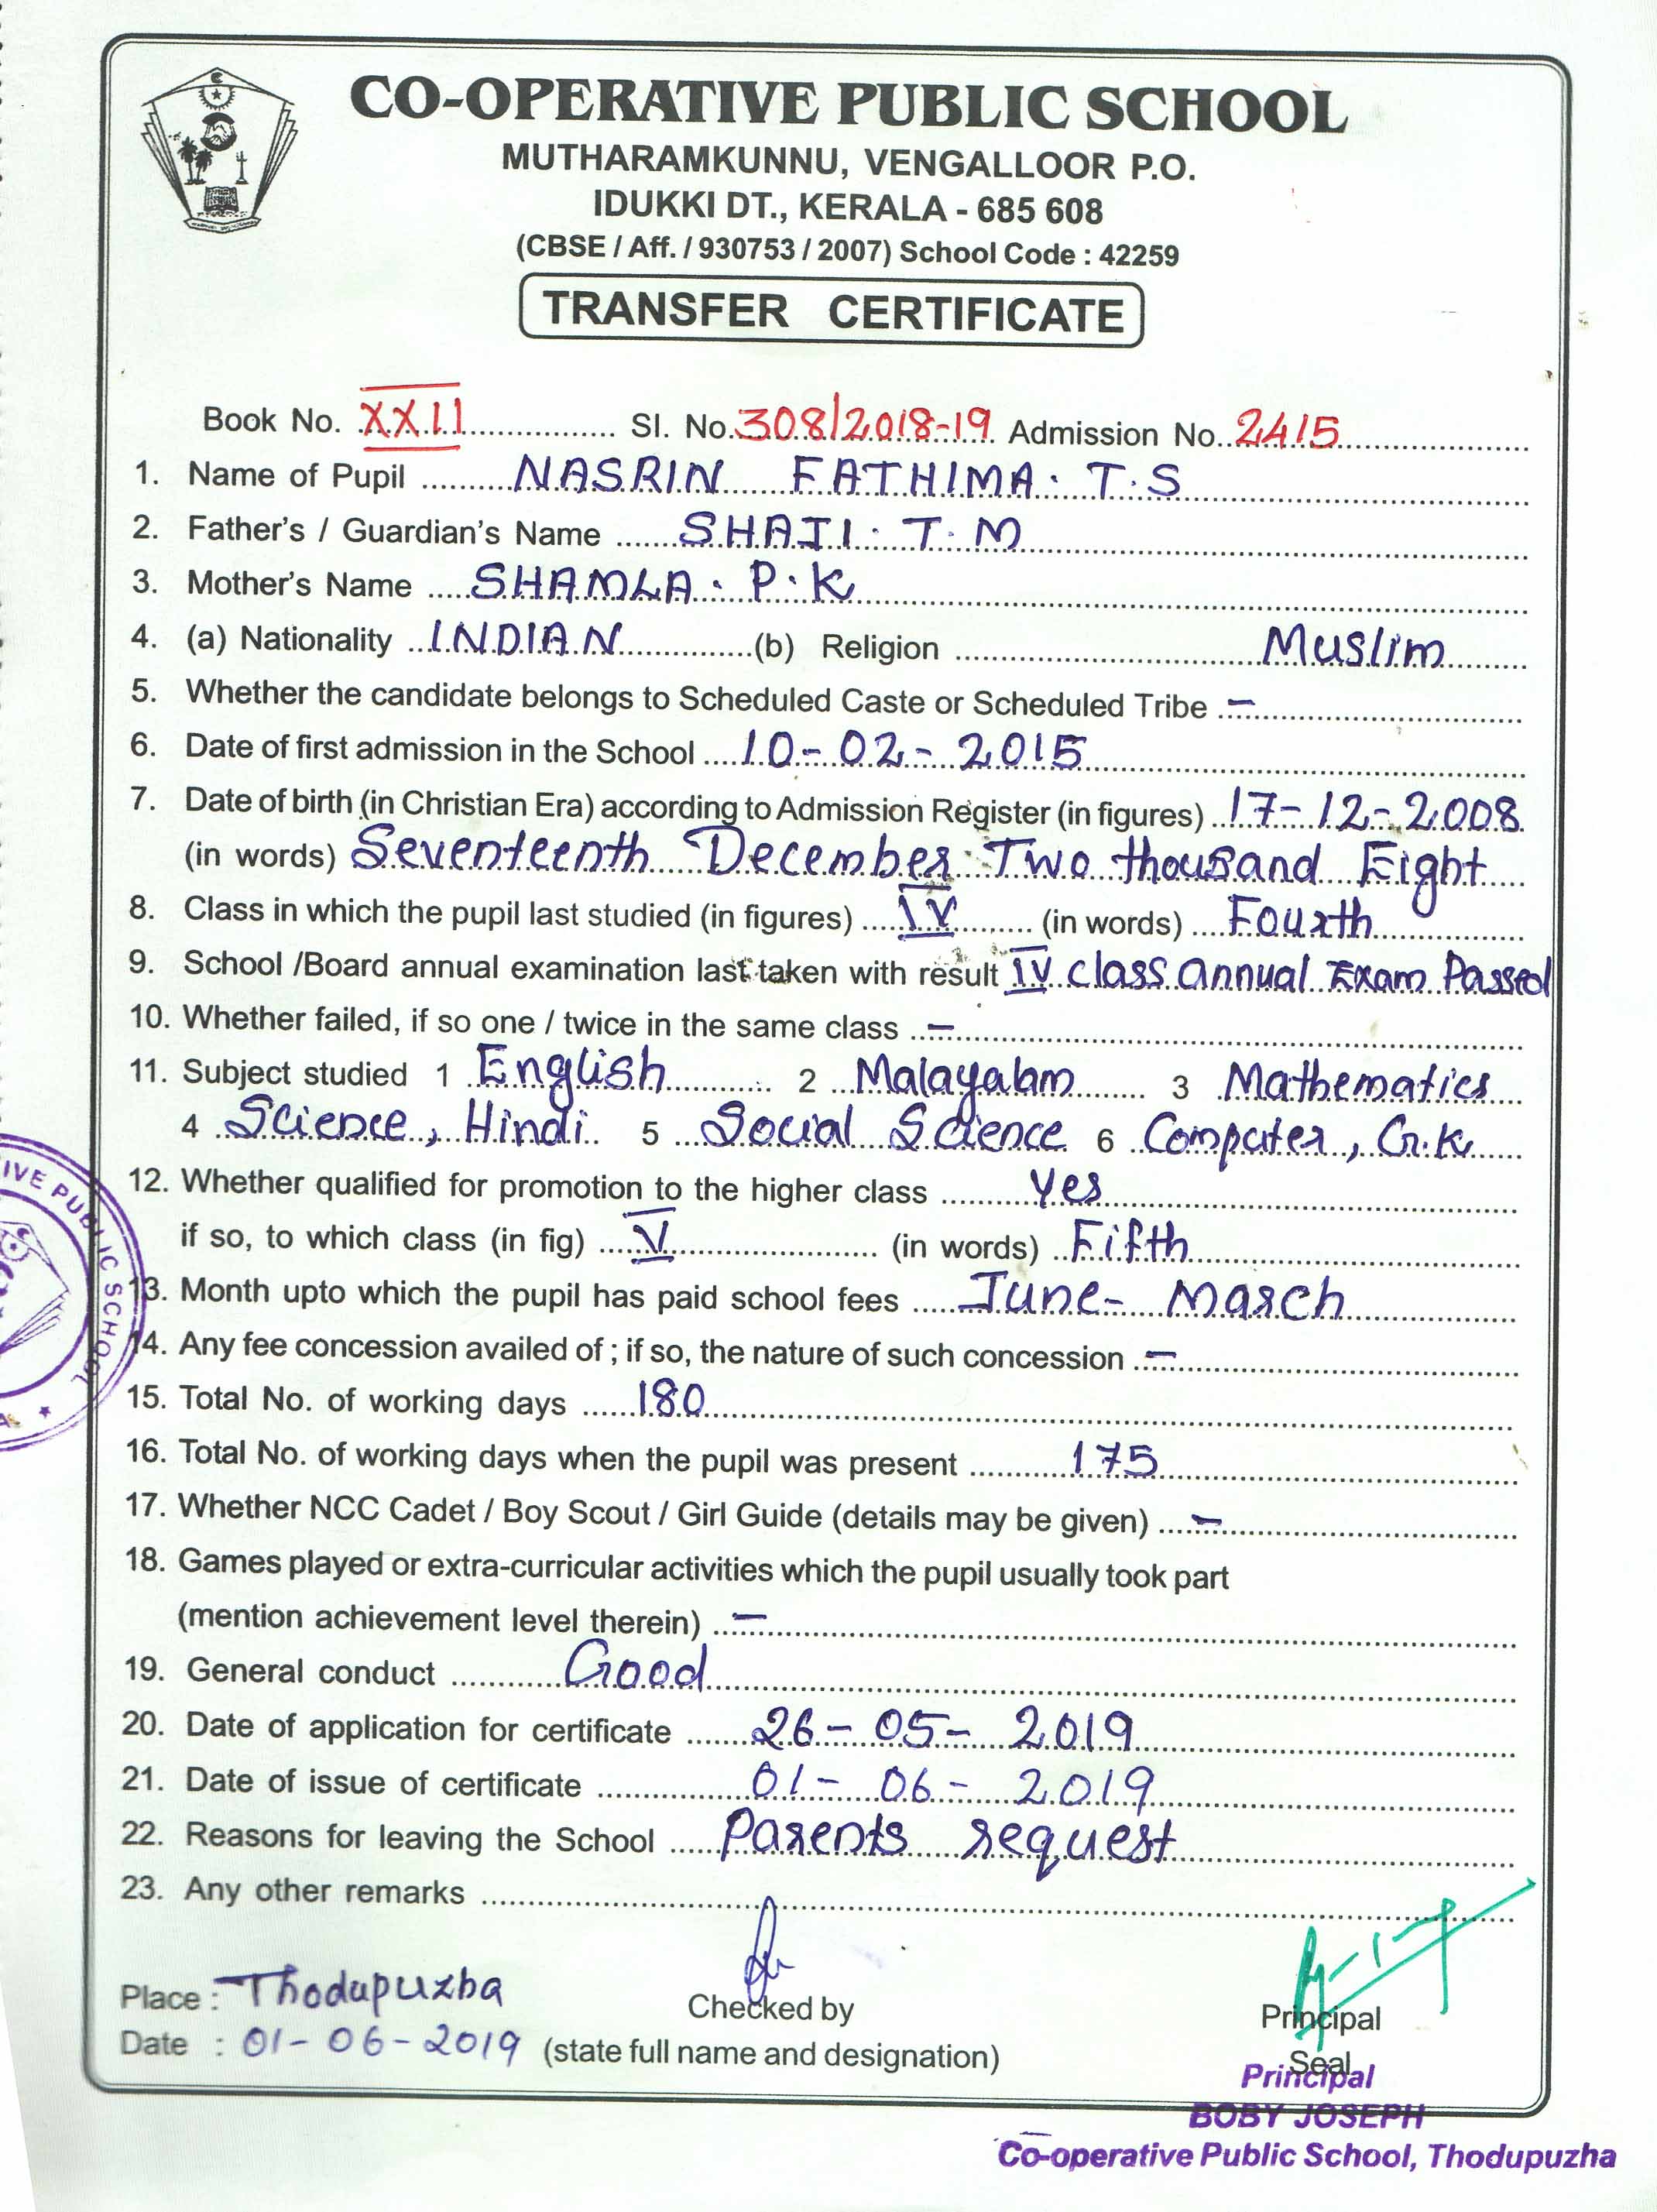 CO-OPERATIVE PUBLIC SCHOOL
MUTHARAMKUNNU, VENGALLOOR P.O.
IDUKKI DT., KERALA - 685 608
(CBSE / Aff. / 930753 / 2007) School Code : 42259
TRANSFER CERTIFICATE
Book No. XXII Sl. No. 308/2018-19 Admission No. 2415
1. Name of Pupil NASRIN FATHIMA. T.S
2. Father's / Guardian's Name SHAJI. T. M
3. Mother's Name SHAMLA. P. K
4. (a) Nationality INDIAN (b) Religion Muslim
5. Whether the candidate belongs to Scheduled Caste or Scheduled Tribe –
6. Date of first admission in the School 10-02-2015
7. Date of birth (in Christian Era) according to Admission Register (in figures) 17-12-2008
(in words) Seventeenth December Two thousand Eight
8. Class in which the pupil last studied (in figures) IV (in words) Fourth
9. School /Board annual examination last taken with result IV class annual Exam Passed
10. Whether failed, if so one / twice in the same class –
11. Subject studied 1 English 2 Malayalam 3 Mathematics
4 Science, Hindi 5 Social Science 6 Computer, G.K
12. Whether qualified for promotion to the higher class Yes
if so, to which class (in fig) V (in words) Fifth
13. Month upto which the pupil has paid school fees June- March
14. Any fee concession availed of ; if so, the nature of such concession –
15. Total No. of working days 180
16. Total No. of working days when the pupil was present 175
17. Whether NCC Cadet / Boy Scout / Girl Guide (details may be given) –
18. Games played or extra-curricular activities which the pupil usually took part
(mention achievement level therein) –
19. General conduct Good
20. Date of application for certificate 26-05-2019
21. Date of issue of certificate 01-06-2019
22. Reasons for leaving the School Parents request
23. Any other remarks
Place : Thodupuzha Checked by Principal
Date : 01-06-2019 (state full name and designation) Seal
Principal
BOBY JOSEPH
Co-operative Public School, Thodupuzha
PUBLIC SCHOOL